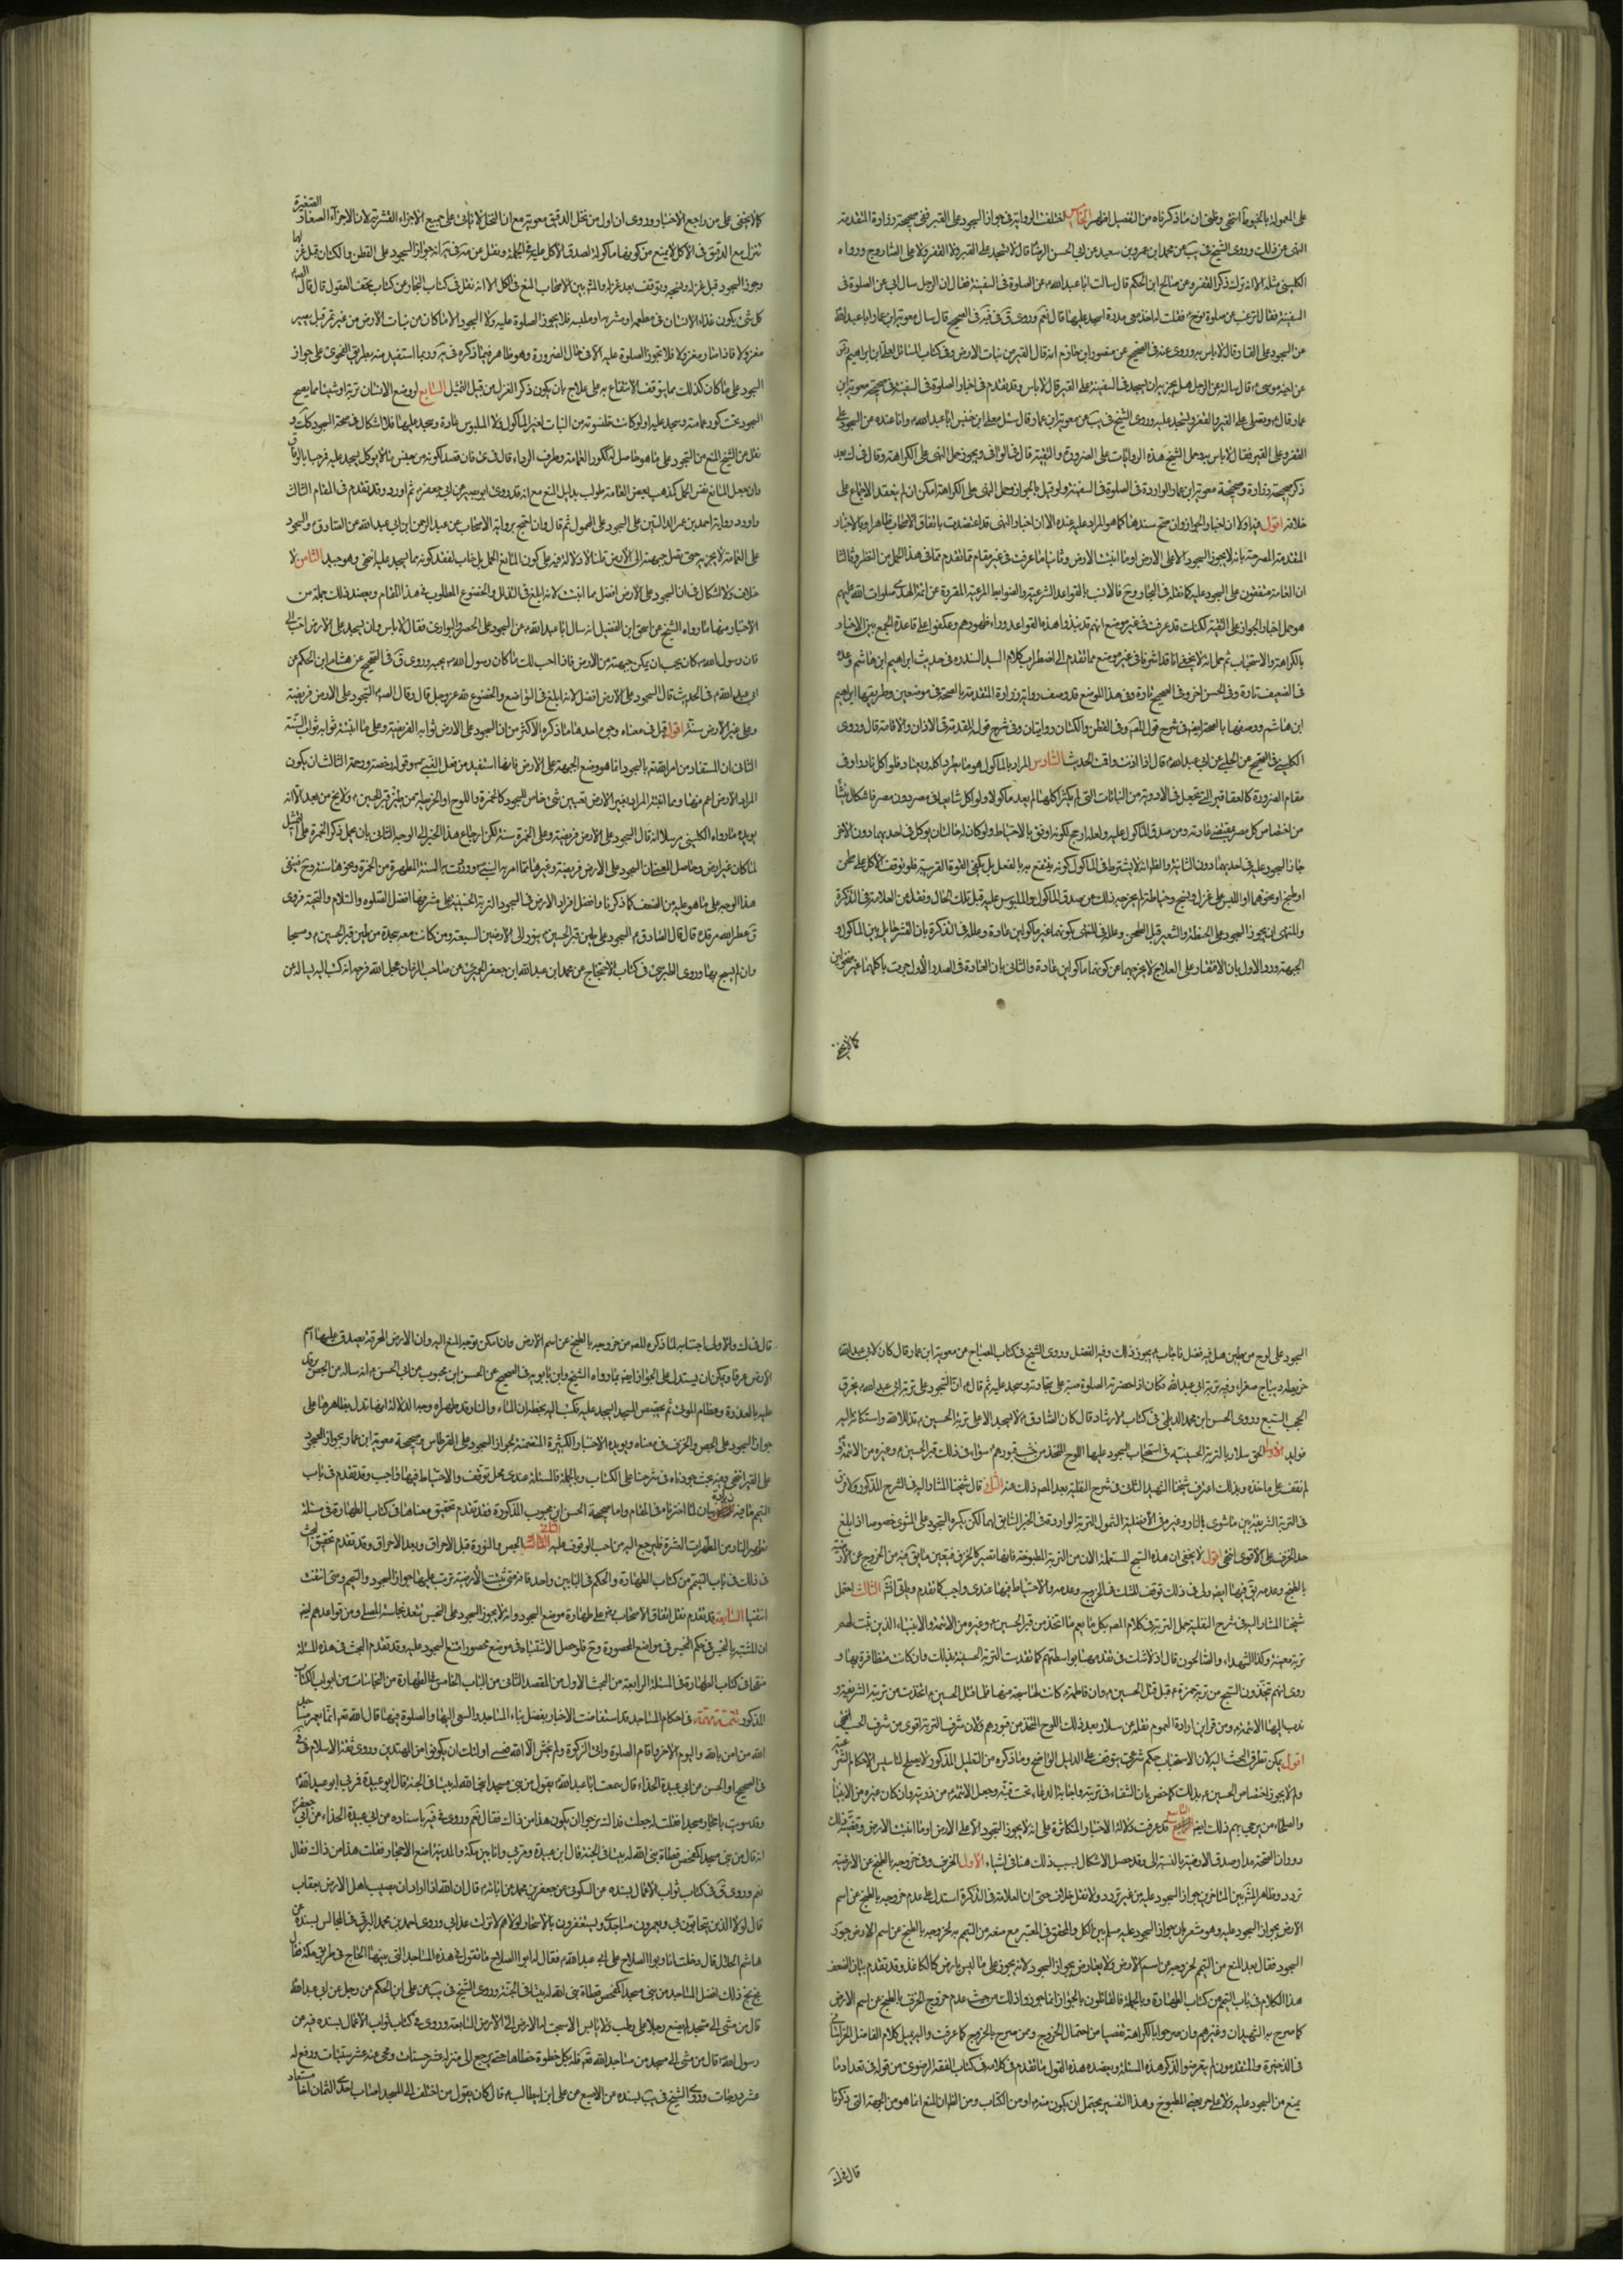 على المعمولة بالخيوط انتهى وظني ان ما ذكرناه من التفصيل اظهر الخامس اختلفت الرواية في جواز السجود على القير ففي صحيحة زرارة المتقدمة
النهى عن ذلك وروى الشيخ في يب عن محمد ابن عمرو بن سعيد عن ابي الحسن الرضا قال لا تسجد على القير ولا القفر ولا على الصاروج ورواه
الكليني مثله الا انه ترك ذكر القفر وعن صالح ابن الحكم قال سالت ابا عبد الله عن الصلوة في السفينة فقال ان الرجل سال ابي عن الصلوة في
السفينة فقال اترغب عن صلوة نوح فقلت له اخذ معي مدرة اسجد عليها قال نعم وروى في الصحيح قال سال معوية ابن عمار ابا عبد الله
عن السجود على القار قال لا باس به وروى عنه في الصحيح عن منصور ابن حازم انه قال القير من نبات الارض وفي كتاب المسائل لعلي
عن اخيه موسى قال سالته عن الرجل هل يجزيه ان يسجد في السفينة على القير قال لا باس وقد تقدم في اخبار الصلوة في السفينة في صحيحة معوية ابن
عمار قال و تصلي على القير والقفر وتسجد عليه وروى الشيخ في يب عن معوية ابن عمار قال سئل معلى ابن خنيس ابا عبد الله وانا عنده عن السجود على
القفر وعلى القير فقال لا باس به وحمل الشيخ هذه الروايات على الضرورة والتقية قال في الوافي ويجوز حمل النهى على الكراهة وقال في ك بعد
ذكر صحيحة زرارة وصحيحة معوية ابن عمار الواردة في الصلوة في السفينة ولو قيل بالجواز وحمل النهى على الكراهة امكن ان لم ينعقد الاجماع على
خلافه اقول فيه اولا ان اخبار الجواز وان صح سندها كما هو المدار عليه عنده الا ان اخبار النهى قد اعتضدت باتفاق الاصحاب ظاهرا وبالاخبار
المتقدمة المصرحة بانه لا يجوز السجود الا على الارض او ما انبتت الارض وثانيا ما عرفت في غير مقام مما تقدم مما في هذا الحمل من النظر وثالثا
ان العامة متفقون على السجود عليه كما نقله في البحار وح فالانسب بالقواعد الشرعية والضوابط المرعية المقررة عن ائمة الهدى صلوات الله عليهم
هو حمل اخبار الجواز على التقية لكنك قد عرفت في غير موضع انهم قد نبذوا هذه القواعد وراء ظهورهم وعكفوا على قاعدة الجمع بين الاخبار
بالكراهة والاستحباب ثم
في الضعيف تارة وفي الحسن اخرى وفي الصحيح تارة وفي هذا الموضع قد وصف رواية زرارة المتقدمة بالصحة في موضعين وطريقها ابراهيم
ابن هاشم ووصفها بالصحة ايضا في شرح قول المص وفي القطن والكتان روايتان وفي شرح قوله المقدمة في الاذان والاقامة قال وروى
الكليني في الصحيح عن الحلبي عن ابي عبد الله قال اذا اذنت واقمت الحديث السادس المراد بالماكول هو ما يطرد اكله ويعتاد فلو اكل نادرا وفي
مقام الضرورة كالعقاقير التي تجعل في الادوية من النباتات التي لم يكثر اكلها لم يعد ماكولا ولو اكل شايعا في مصر دون مصر فاشكال ينشأ
من اختصاص كل مصر بمقتضى عادته ومن صدق الماكول عليه ولعله ارجح لكونه اوفق بالاحتياط ولو كان له حالتان يوكل في احديهما دون الاخر
جاز السجود عليه في احديهما دون الثانية والظاهر انه لا يشترط في الماكول كونه ينتفع به بالفعل بل يكفى القوة القريبة فلو توقف الاكل على طحن
او طبخ او نحوهما او اللبس على غزل ونسج وخياطة لم يخرجه ذلك من صدق الماكول والملبوس عليه قبل تلك الحال ونقل عن العلامة في التذكرة
والمنتهى انه يجوز السجود على الحنطة والشعير قبل الطحن وعلله في المنتهى بكونهما غير ماكولين عادة وعلله في التذكرة بان القشر حايل بين الماكول و
الجبهة ورد الاول بان الافتقار الى العلاج لا يخرجهما عن كونهما ماكولين عادة والثاني بان العادة في الصدر الاول جرت باكلهما غير منخولين
كما لا يخفى على من راجع الاخبار وروى ان اول من نخل الدقيق معوية مع ان النخل لا ياتي على جميع الاجزاء القشرية لان الاجزاء الصغار
الصغيرة
تنزل مع الدقيق في الاكل لا يمنع من كونها ماكولة لصدق الاكل عليه في الجملة ونقل عن مه في ير انه جوز السجود على القطن والكتان قبل غزلهما
وجوز السجود قبل غزله ونسجه وتوقف بعد غزله والمشهور بين الاصحاب المنع في الكل الا انه نقل في كتاب البحار عن كتاب تحف العقول قال قال الصادق
كل شئ يكون غذاء الانسان في مطعمه او مشربه او ملبسه فلا يجوز الصلوة عليه ولا السجود الا ما كان من نبات الارض من غير ثمر قبل ان يصير
مغزولا فاذا صار مغزولا فلا تجوز الصلوة عليه الا في حال الضرورة وهو ظاهر فيما ذكره في ير وربما استفيد منه بطريق الفحوى على جواز
السجود على ما كان كذلك مما يتوقف الانتفاع به على علاج بان يكون ذكر الغزل من قبيل التمثيل السابع لو وضع الانسان تربة او شيئا مما يصح
السجود تحت كور عمامته وسجد عليه او لو كانت قلنسوته من النبات الغير الماكول ولا الملبوس عادة وسجد عليها فلا اشكال في صحة السجود كذلك و
نقل عن الشيخ المنع من السجود على ما هو حامل له ككور العمامة وطرف الرداء قال في عن فان قصد لكونه من جنس ما لا يوكل يسجد عليه فمرحبا بالوفاق
وان جعل المانع نفس الحمل كمذهب بعض العامة طولب بدليل المنع مع انه قد روى ابو بصير عن ابي جعفر ثم اورد وقد تقدم في المقام الثالث
واورد رواية احمد بن عمر الدالتين على السجود على المحمول ثم قال وان احتج برواية الاصحاب عن عبد الرحمن ابن ابي عبد الله عن الصادق في السجود
على العمامة لا يجزيه حتى تصل جبهته الى الارض قلنا لا دلالة فيه على كون المانع الحمل بل جاز لفقد كونه مما يسجد عليه انتهى وهو جيد الثامن لا
خلاف ولا اشكال في ان السجود على الارض افضل مما انبتت لانه ابلغ في التذلل والخضوع المطلوب في هذا المقام ويعضد ذلك جملة من
الاخبار منها ما رواه الشيخ عن اسحق ابن الفضيل انه سال ابا عبد الله عن السجود على الحصر والبواري فقال لا باس وان يسجد على الارض احب الي
فان رسول الله كان يحب ان يمكن جبهته من الارض فانا احب لك ما كان رسول الله يحبه وروى ق في الصحيح عن هشام ابن الحكم عن
ابي عبد الله في الحديث قال السجود على الارض افضل لانه ابلغ في التواضع والخضوع لله عز وجل قال وقال الص السجود على الارض فريضة
وعلى غير الارض سنة اقول قيل في معناه وجوه احدها ما ذكره الاكثر من ان السجود على الارض ثوابه ثواب الفريضة وعلى ما انبتته ثوابه ثواب السنة
الثاني ان المستفاد من امر الله تعالى بالسجود انما هو وضع الجبهة على الارض فانها استفيد من فعل النبي وقوله رخصة ورحمة الثالث ان يكون
المراد بالارض اعم منها ومما انبتته المراد بغير الارض تعيين شئ خاص للسجود كالخمرة واللوح او الخريطة من طين قبر الحسين ولا يخ من بعد الا انه
يويده ما رواه الكليني مرسلا انه قال السجود على الارض فريضة وعلى الخمرة سنة لكن ارجاع هذا الخبر الى الوجه الثاني بان يحمل ذكر الخمرة على التمثيل
لما كان غير ارض وحاصل المعنى ان السجود على الارض فريضة وغيرها مما امر به النبي ووردت به السنة المطهرة من الخمرة ونحوها سنة وح فيبقى
هذا الوجه على ما هو عليه من الضعف كما ذكرنا وافضل افراد الارض في السجود التربة الحسينية على مشرفها افضل الصلوة والسلام والتحية فروى
ق عطر الله مرقده قال قال الصادق السجود على طين قبر الحسين ينور الى الارضين السبعة ومن كانت معه سبحة من طين قبر الحسين كتب مسبحا
وان لم يسبح بها وروى الطبرسي في كتاب الاحتجاج عن محمد ابن عبد الله ابن جعفر الحميري عن صاحب الزمان عجل الله فرجه انه كتب اليه يساله عن
كما لا يخفى
السجود على لوح من طين هل فيه فضل فاجاب يجوز ذلك وفيه الفضل وروى الشيخ في كتاب المصباح عن معوية ابن عمار قال كان لابي عبد الله
خريطة ديباج صفراء وفيه تربة ابي عبد الله فكان اذا حضرته الصلوة صبه على سجادته وسجد عليه ثم قال ان السجود على تربة ابي عبد الله يخرق
الحجب السبع وروى الحسن ابن محمد الديلمي في كتاب الارشاد قال كان الصادق لا يسجد الا على تربة الحسين تذللا لله واستكانة اليه
فوايد الاولى الحق سلار بالتربة الحسينية في استحباب السجود عليها اللوح المتخذ من خشب قبورهم سواء في ذلك قبر الحسين وغيره من الائمة ولم
لم نقف على ماخذه وبذلك اعترف شيخنا الشهيد الثاني في شرح النفلية بعد المصر ذلك عنه الثانية قال شيخنا المشار اليه في الشرح المذكور ولا فرق
في التربة الشريفة بين ما شوى بالنار وغيره في الافضلية الشمول التربة الواردة في الخبر السابق لهما لكن يكره السجود على المشوى خصوصا اذا بلغ
حد الخزف على الاقوى انتهى اقول لا يخفى ان هذه السبح المستعملة الان من التربة المطبوخة فانها تصير كالخزف فيتعين ما سبق فيه من الخروج عن الارضية
بالطبخ وعدمه في فيها ايضا ولي في ذلك توقف للشك في الخروج وعدمه والاحتياط فيها عندي واجب كما تقدم وياتي انشاء الله الثالث احتمل
شيخنا المشار اليه في شرح النفلية حمل التربة في كلام المصر بكل ما يعم ما اتخذ من قبر الحسين وغيره من الائمة والانبياء الذين ثبت لهم
تربة معينة وكذا الشهداء والصالحون قال اذ لا شك في تقدسها بواسطتهم كما تقدست التربة الحسينية بذلك وان كانت متظافرة بها و
روى انهم تتخذون السبح من تربة حمزة قبل قتل الحسين وان فاطمة كانت لها سبحة منها فلما قتل الحسين اتخذت من تربته الشريفة و
ندب اليها الائمة ومن قراين ارادة العموم نقله عن سلار بعد ذلك اللوح المتخذ من قبورهم ولان شرف التربة اقوى من شرف الخشب انتهى
اقول يمكن تطرق البحث اليه لان الاستحباب حكم شرعي يتوقف على الدليل الواضح وما ذكره من التعليل المذكور لا يصلح لتاسيس الاحكام الشرعية
ولم لا يجوز اختصاص الحسين بذلك كما خص بان الشفاء في تربته واجابة الدعاء تحت قبته وجعل الائمة من ذريته وان كان غيره من الانبياء
والصلحاء من يرجى بهم ذلك ايضا التاسع قد عرفت دلالة الاخبار المتكاثرة على انه لا يجوز السجود الا على الارض او ما انبتت الارض وقضية ذلك
دوران الصحة مدار صدق الارضية بالنسبة الى وقد حصل الاشكال بسبب ذلك هنا في اشياء الاول الخزف وفي خروجه بالطبخ عن الارضية
تردد وظاهر المشهور بين المتاخرين جواز السجود عليه من غير تردد ولا نقل خلاف حتى ان العلامة في التذكرة استدل على عدم خروجه بالطبخ عن اسم
الارض بجواز السجود عليه وهو مشعر بان جواز السجود عليه مسلم بين الكل والمحقق في المعتبر مع منعه من التيمم به لخروجه بالطبخ عن اسم الارض جوز
السجود فقال بعد المنع من التيمم لخروجه عن اسم الارض ولا يعارض بجواز السجود لانه يجوز على ما ليس بارض كالكاغذ وقد تقدم بيان الضعف
هذا الكلام في باب التيمم من كتاب الطهارة وبالجملة فالقائلون بالجواز انما جوزوا ذلك من حيث عدم خروج الخزف بالطبخ عن اسم الارض
كما صرح به الشهيدان وغيرهم وان صرحوا بالكراهة تفصيا من احتمال الخروج ومن صرح بالخروج كما عرفت واليه يميل كلام الفاضل الخراساني
في الذخيرة والمتقدمون لم يتعرضوا لذكر هذه المسئلة ويعضده هذه القول ما تقدم في كلامه في كتاب الفقه الرضوى من قوله في تعداد ما
يمنع من السجود عليه ولا على حر يعني المطبوخ وهذا التفسير يحتمل ان يكون منه او من الكتاب ومن الظاهر ان المنع انما هو من الجهة التي ذكرنا
قال في ك
قال في ك والاولى اجتنابه لما ذكره المصر من خروجه بالطبخ عن اسم الارض وان امكن توجه المنع اليه وان الارض المحرقة يصدق عليها اسم
الارض عرفا ويمكن ان يستدل على الجواز ايضا بما رواه الشيخ وابن بابويه في الصحيح عن الحسن ابن محبوب عن ابي الحسن انه ساله عن الجص يوقد
عليه بالعذرة وعظام الموتى ثم يجصص المسجد ايسجد عليه فكتب اليه بخطه ان الماء والنار قد طهراه وجه الدلالة انها تدل بظاهرها على
جواز السجود على الجص والخزف في معناه ويويده الاخبار الكثيرة المتضمنة لجواز السجود على القرطاس وصحيحة معوية ابن عمار بجواز السجود
على القير انتهى وفيه بحث جوزناه في شرحنا على الكتاب وبالجملة فالمسئلة عندي محل توقف والاحتياط فيها واجب وقد تقدم في باب
التيمم ما فيه زيادة بيان لما اخترناه في المقام واما صحيحة الحسن ابن محبوب المذكورة فقد تقدم تحقيق معناها في كتاب الطهارة في مسئلة
تطهير النار من المطهرات العشرة فليرجع اليه من احب الوقوف عليه الثاني الجص والنورة قبل الاحراق وبعد الاحراق وقد تقدم تحقيق البحث
في ذلك في باب التيمم من كتاب الطهارة والحكم في البابين واحد فانه متى ثبتت الارضية ترتب عليها جواز السجود والتيمم ومتى انتفت
انتفيا السابعة قد تقدم نقل اتفاق الاصحاب على طهارة موضع السجود وانه لا يجوز السجود على النجس بتعد نجاسة المصلى ومن قواعدهم ايضا
ان المشتبه بالنجس في حكم النجس في مواضع المحصورة وح فلو حصل الاشتباه في موضع محصور امتنع السجود عليه وقد تقدم البحث في هذه المسئلة
منقحا في كتاب الطهارة في المسئلة الرابعة من البحث الاول من المقصد الثاني من الباب الخامس في الطهارة من النجاسات من ابواب الكتاب
المذكور تتمة مهمة في احكام المساجد قد استفاضت الاخبار بفضل بناء المساجد والسعي اليها والصلوة فيها قال الله تعم انما يعمر مساجد
الله من امن بالله واليوم الاخر واقام الصلوة واتى الزكوة ولم يخش الا الله فعسى اولئك ان يكونوا من المهتدين وروى ثقة الاسلام
في الصحيح او الحسن عن ابي عبيدة الحذاء قال سمعت ابا عبد الله يقول من بنى مسجدا بنى الله له بيتا في الجنة قال ابو عبيدة فمر بي ابو عبد الله
وقد سويت باحجار مسجدا فقلت له جعلت فداك نرجو ان يكون هذا من ذاك فقال نعم وروى في فيه باسناده عن ابي عبيدة الحذاء عن ابي جعفر
انه قال من بنى مسجدا كمفحص قطاة بنى الله له بيتا في الجنة قال ابو عبيدة ومر بي وانا بين مكة والمدينة اضع الاحجار فقلت هذا من ذاك فقال
نعم وروى ق في كتاب ثواب الاعمال بسنده عن السكوني عن جعفر بن محمد عن ابائه قال ان الله اذا اراد ان يصيب اهل الارض بعذاب
قال لولا الذين يتحابون في ويعمرون مساجدي ويستغفرون بالاسحار لولاهم لانزلت عذابي وروى احمد بن محمد البرقي في المحاسن بسنده عن
هاشم الحلال قال دخلت انا وابو الصلاح على ابي عبد الله فقال له ابو الصلاح ما تقول في هذه المساجد التي بنتها الحاج في طريق مكة فقال
بخ بخ ذلك افضل المساجد من بنى مسجدا كمفحص قطاة بنى الله له بيتا في الجنة وروى الشيخ في يب عن علي ابن الحكم عن رجل عن ابي عبد الله
قال من مشى الى مسجد لم يضع رجله على رطب ولا يابس الا سبحت له الارض الى الارض السابعة وروى في كتاب ثواب الاعمال بسنده فيه عن
رسول الله قال من مشى الى مسجد من مساجد الله تعم فله بكل خطوة خطاها حتى يرجع الى منزله عشر حسنات ومحى عنه عشر سيئات ورفع له
عشر درجات وروى الشيخ في يب بسنده عن الاصبغ عن علي ابن ابي طالب قال كان يقول من اختلف الى المسجد اصاب احدى الثمان اخا مستفادا